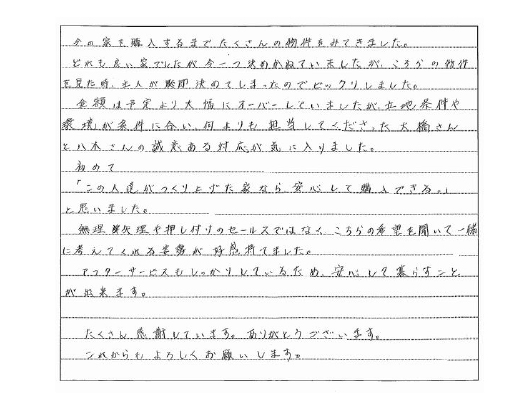 今の家を購入するまでたくさんの物件をみてきました。
どれも良い家でしたが今一つ決めかねていましたが、こちらの物件
を見た時、主人が即決めてしまったのでビックリしました。
金額は予定より大幅にオーバーしていましたが、立地条件や
環境が条件に合い、何よりも担当してくださった大橋さん
と八木さんの誠意ある対応が気に入りました。
初めて
「この人達がつくり上げた家なら安心して購入できる。」
と思いました。
無理矢理や押し付けのセールスではなく、こちらの希望を聞いて一緒
に考えてくれる姿勢が好感持てました。
アフターサービスもしっかりしているため、安心して暮らすこと
が出来ます。
たくさん感謝しています。ありがとうございます。
これからもよろしくお願いします。